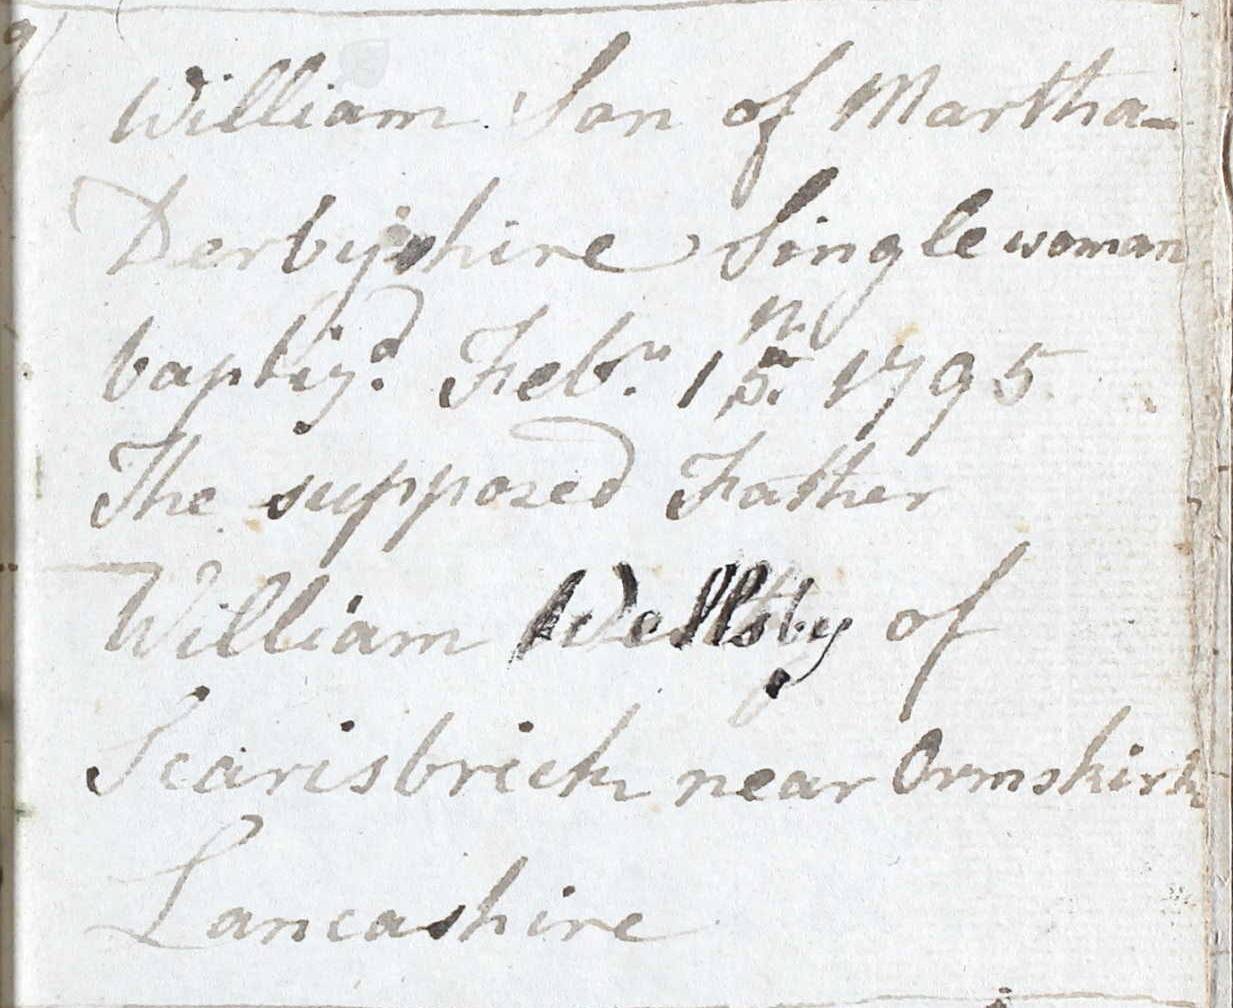 William Son of Martha
Derbyshire Single woman
baptiz.d Feb.ry 15.th 1795
The supposed Father
William Wellsby of
Scarisbrick near Ormskirk
Lancashire